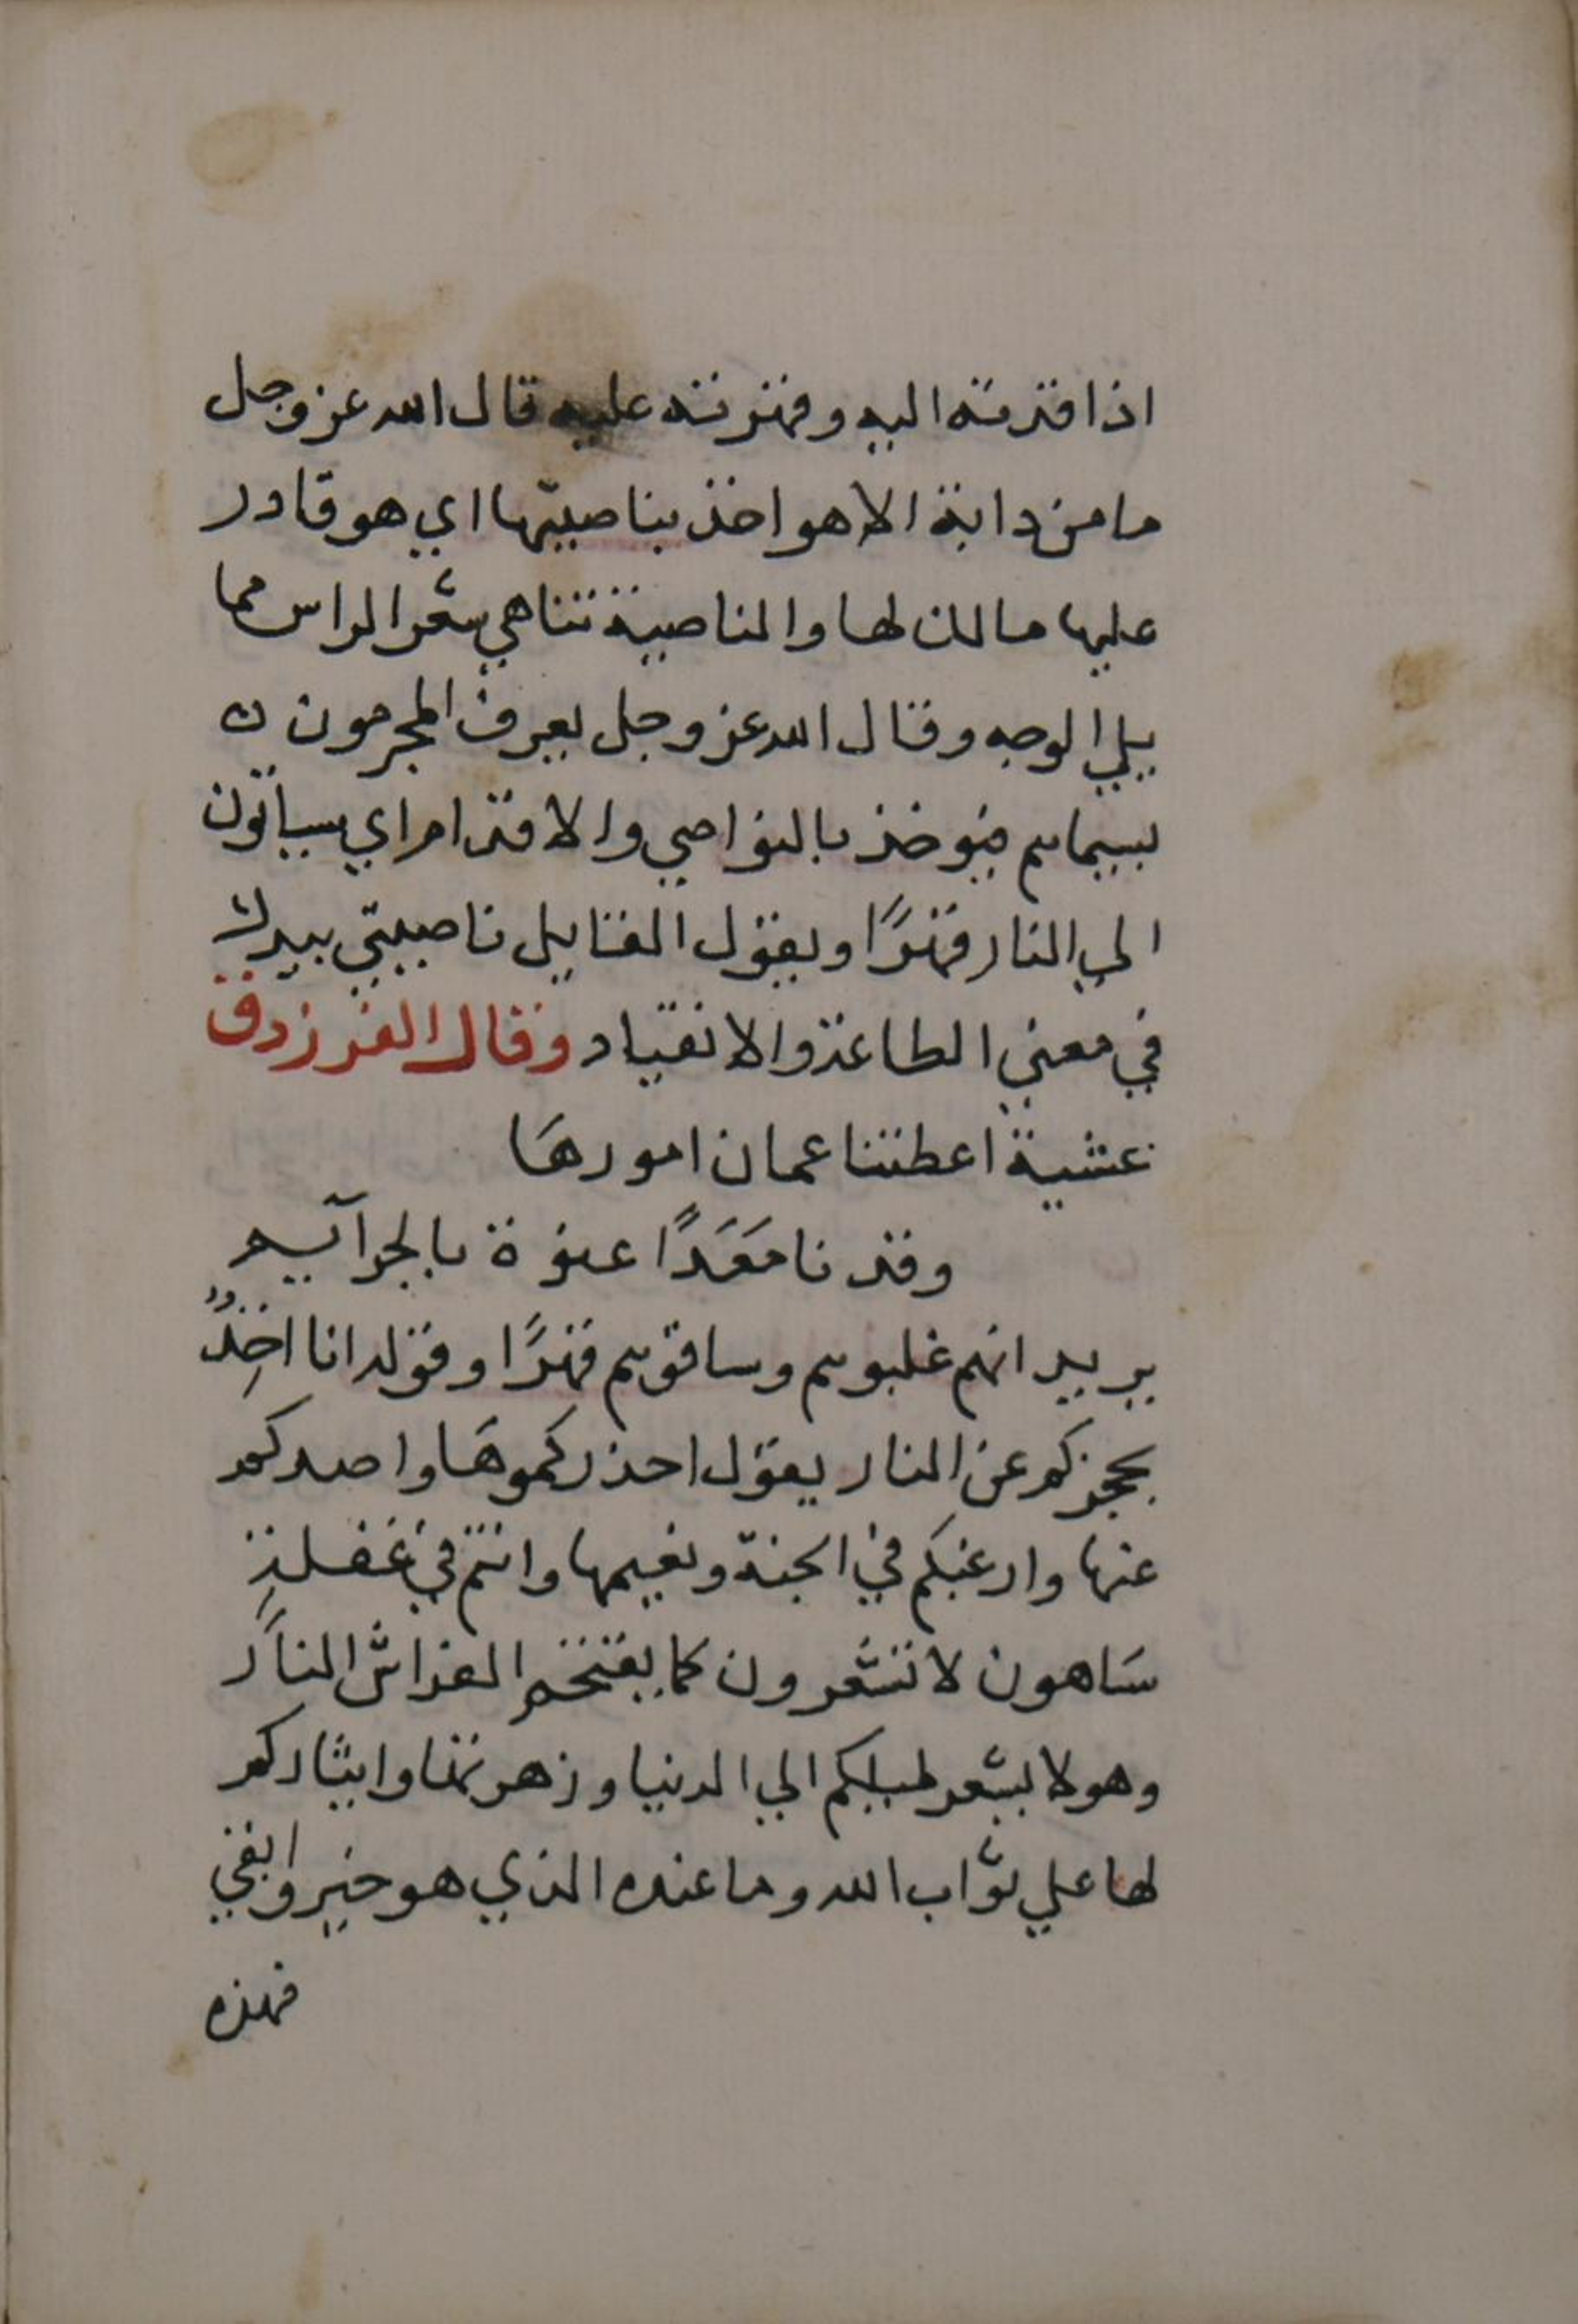 اذا قدته اليه وقهرته عليه قال الله عز وجل
ما من دابة الا هو اخذ بناصيتها اي هو قادر
عليها مالك لها والناصية هي شعر الراس مما
يلي الوجه وقال الله عز وجل يعرف المجرمون
بسيماهم فيوخذ بالنواصي والاقدام اي يساقون
الي النار قهرًا ويقول القايل ناصيتي بيدك
في معني الطاعة والانقياد وقال الفرزدق
عشية اعطتنا عمان امورها
وقدنا مَعَدًا عنوة بالجرآيم
يريد انهم غلبوهم وساقوهم قهرًا وقوله انا اخِذٌ
بحجزكم عن النار يقول احذركموها واصدكم
عنها وارغبكم في الجنة ونعيمها وانتم في غفلة
سَاهون لا تشعرون كما يقتحم الفراش النار
وهو لا يشعر لميلكم الي الدنيا وزهرتها وايثاركم
لها علي ثواب الله وما عنده الذي هو خير وابقي
فهذه